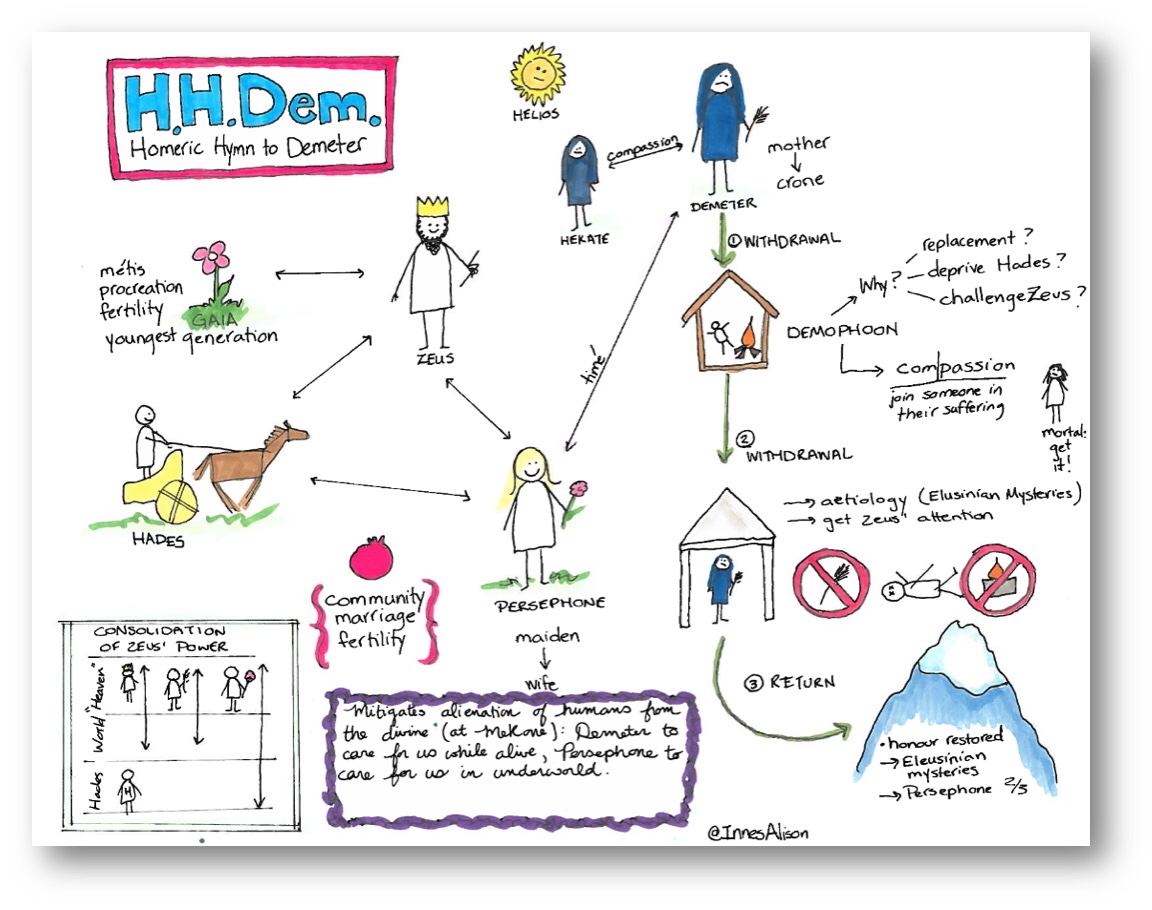 H.H.Dem.
Homeric Hymn to Demeter
HELIOS
HEKATE
compassion
DEMETER
mother
crone
métis
procreation
fertility
youngest generation
GAIA
ZEUS
time
① WITHDRAWAL
DEMOPHOON
Why?
replacement?
deprive Hades?
challenge Zeus?
compassion
join someone in
their suffering
mortal:
get
it!
② WITHDRAWAL
→ aetiology (Elusinian Mysteries)
→ get Zeus' attention
HADES
community
marriage
fertility
PERSEPHONE
maiden
wife
CONSOLIDATION
OF ZEUS' POWER
"Heaven"
World
Hades
H
Mitigates alienation of humans from
the divine (at Mekone): Demeter to
care for us while alive, Persephone to
care for us in underworld.
③ RETURN
• honour restored
→ Eleusinian
mysteries
→ Persephone 2/3
@InnesAlison